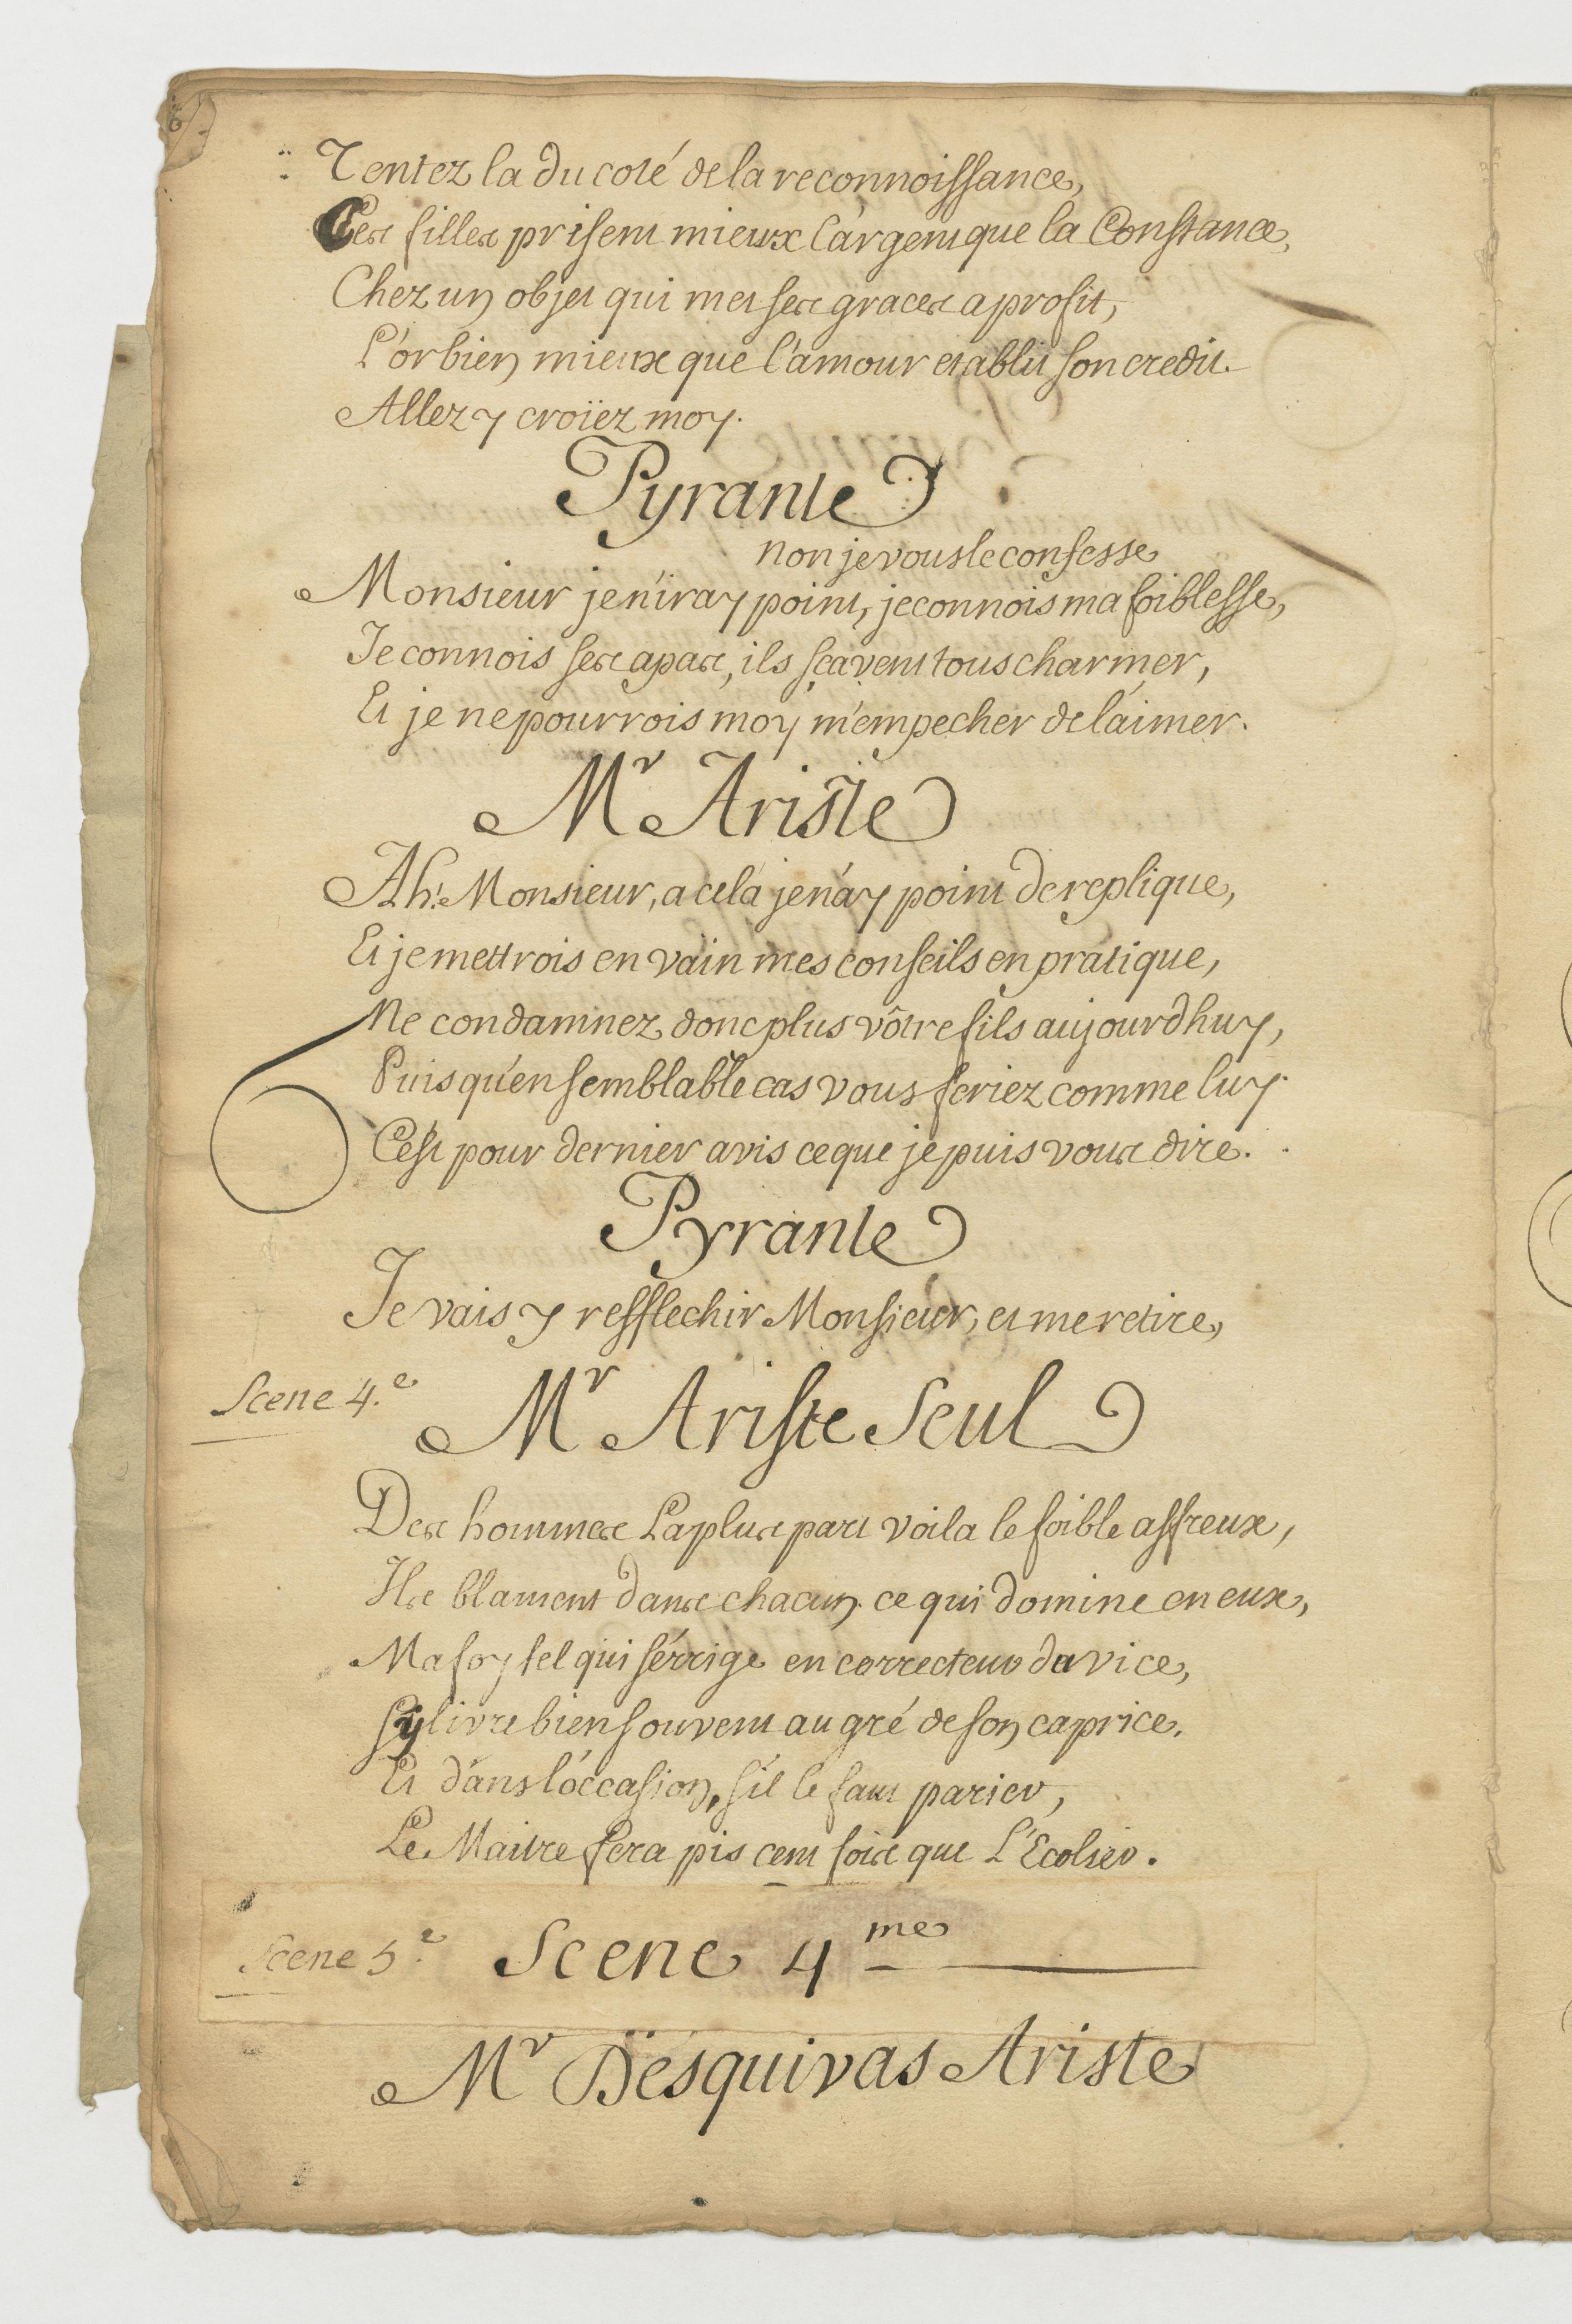 Tentez la du coté de la reconnoissance,
Ces filles prisent mieux l'argent que la Constance,
Chez un objet qui met ses graces a profit,
L'or bien mieux que l'amour etablit son credit.
Allez y croïez moy.
Pyrante
non je vous le confesse
Monsieur je n'iray point, je connois ma foiblesse,
Je connois ses apas, ils sçavent tous charmer,
Et je ne pourrois moy m'empecher de l'aimer.
Mr Ariste
Ah! Monsieur, a cela je n'ay point de replique,
Et je mettrois en vain mes conseils en pratique,
Ne condamnez donc plus vôtre fils aujourdhuy,
Puis qu'en semblable cas vous feriez comme luy.
C'est pour dernier avis ce que je puis vous dire.
Pyrante
Je vais y reffléchir Monsieur, et me retire,
Scene 4.e
Mr Ariste Seul
Des hommes La plus part voila le foible affreux,
Ils blament dans chacun ce qui domine en eux,
Ma foy tel qui s'érrige en correcteur du vice,
S'y livre bien souvent au gré de son caprice.
Et dans l'occasion, s'il le faut parier,
Le Maitre fera pis cent fois que L'Ecolier.
Scene 5.e Scene 4me
Mr Desquivas Ariste